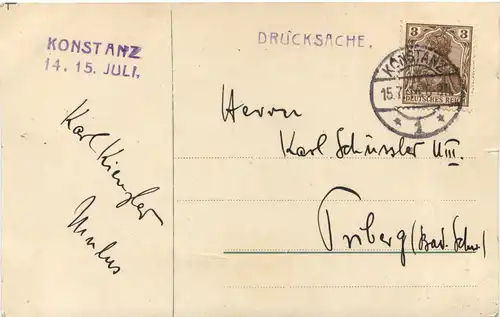 KONSTANZ
14. 15. JULI.
DRÜCKSACHE.
3
DEUTSCHES REICH
KONSTANZ
15.7
* 1 *
Herrn
Karl Schüssler UIII.
Triberg (Bad. Schw.)
Karl Kienzler